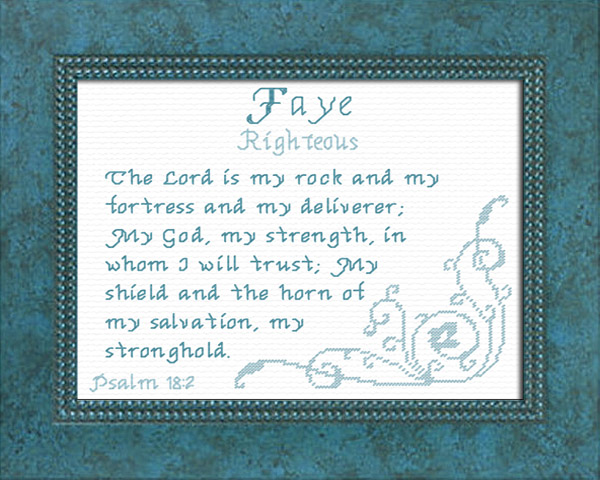 Faye
Righteous
The Lord is my rock and my
fortress and my deliverer;
My God, my strength, in
whom I will trust; My
shield and the horn of
my salvation, my
stronghold.
Psalm 18:2